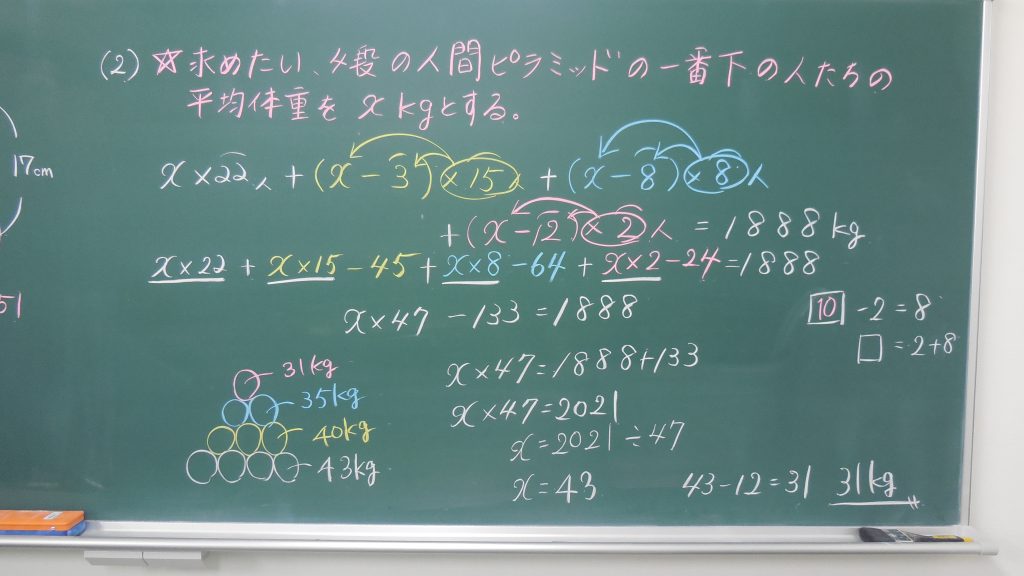 (2) ☆求めたい、4段の人間ピラミッドの一番下の人たちの
平均体重を x kgとする。
17cm
x×22人+(x-3)×15人+(x-8)×8人
+(x-12)×2人=1888kg
x×22+x×15-45+x×8-64+x×2-24=1888
51
x×47-133=1888
10-2=8
□=2+8
x×47=1888+133
x×47=2021
x=2021÷47
x=43
43-12=31 31kg
31kg
35kg
40kg
43kg